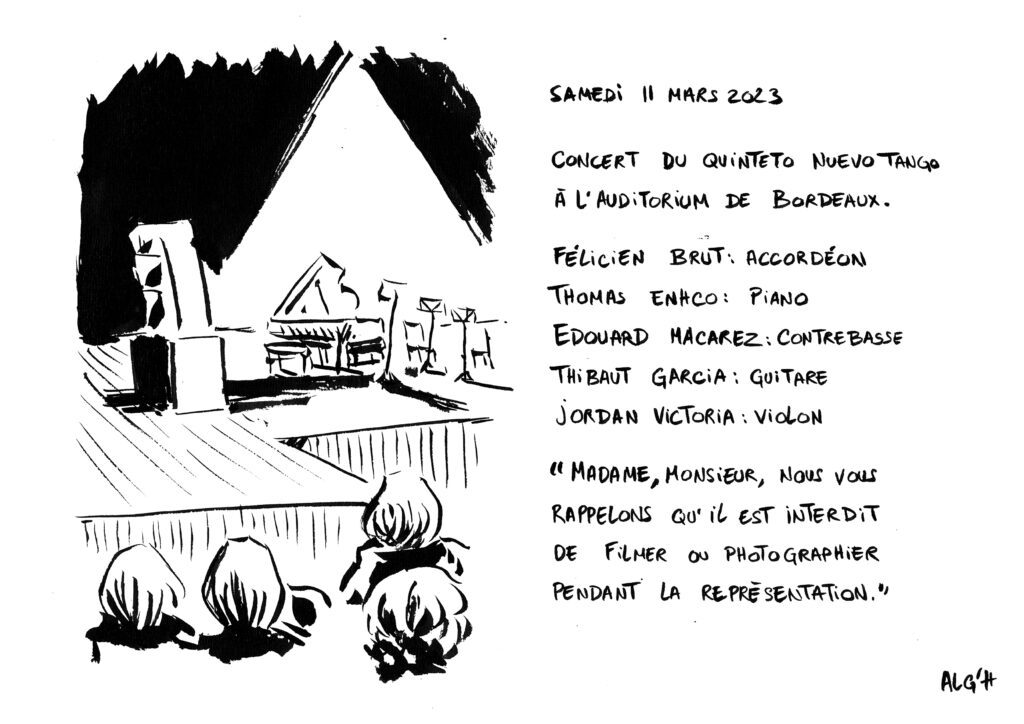 SAMEDI 11 MARS 2023
CONCERT DU QUINTETO NUEVO TANGO
À L'AUDITORIUM DE BORDEAUX.
FÉLICIEN BRUT: ACCORDÉON
THOMAS ENHCO: PIANO
EDOUARD MACAREZ: CONTREBASSE
THIBAUT GARCIA: GUITARE
JORDAN VICTORIA: VIOLON
"MADAME, MONSIEUR, NOUS VOUS
RAPPELONS QU'IL EST INTERDIT
DE FILMER OU PHOTOGRAPHIER
PENDANT LA REPRÉSENTATION."
ALG'H